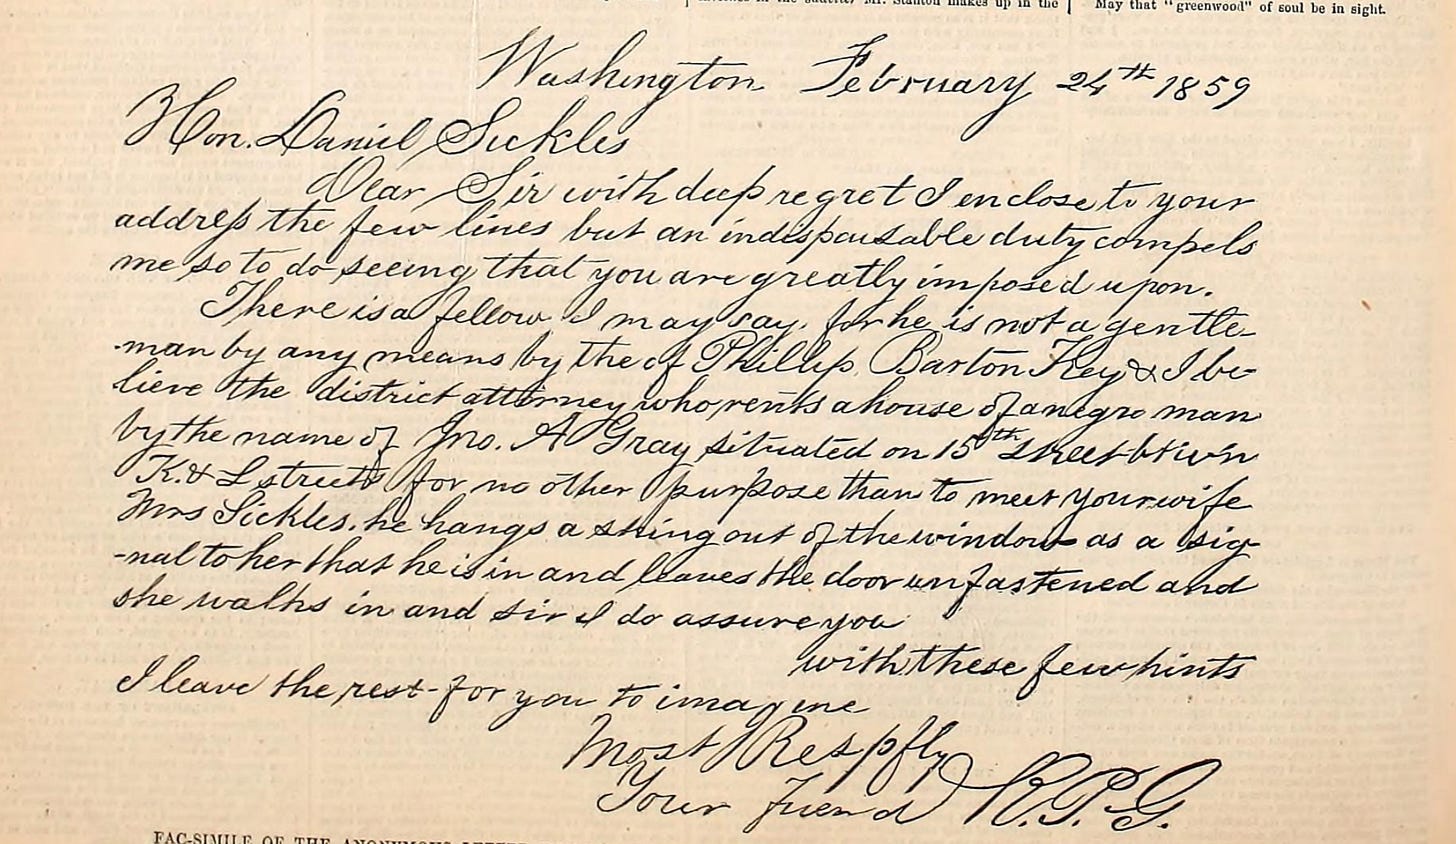 makes up in the
May that "greenwood" of soul be in sight.
Washington February 24th 1859
Hon. Daniel Sickles
Dear Sir with deep regret I enclose to your
address the few lines but an indispensable duty compels
me so to do seeing that you are greatly imposed upon.
There is a fellow I may say, for he is not a gentle-
-man by any means by the of Phillip Barton Key & I be-
lieve the district attorney who rents a house of a negro man
by the name of Jno. A Gray situated on 15th Street btwn
K. & L streets for no other purpose than to meet your wife
Mrs Sickles. he hangs a string out of the window as a sig-
-nal to her that he is in and leaves the door unfastened and
she walks in and sir I do assure you
with these few hints
I leave the rest for you to imagine
Most Respfly
Your friend R. P. G.
FAC-SIMILE OF THE ANONYMOUS LETTER